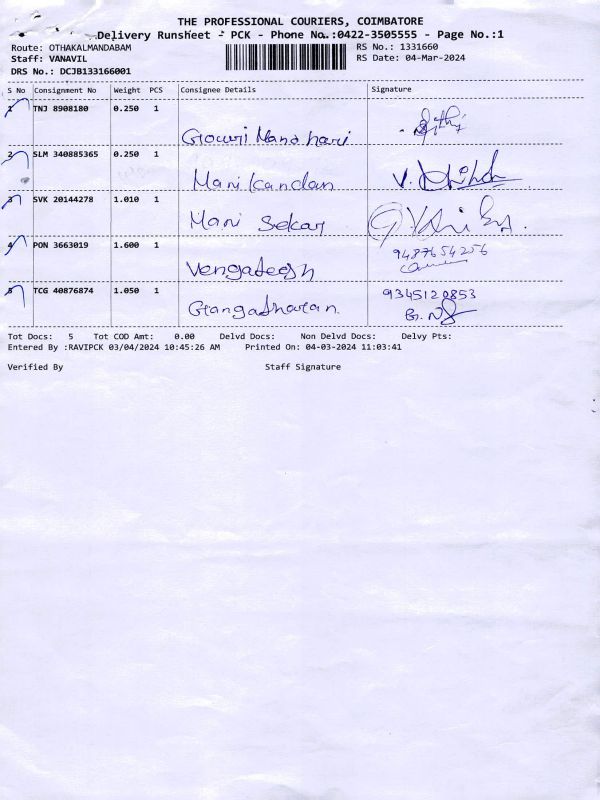 THE PROFESSIONAL COURIERS, COIMBATORE
Delivery Runsheet - PCK - Phone No.:0422-3505555 - Page No.:1
Route: OTHAKALMANDABAM
RS No.: 1331660
Staff: VANAVIL
RS Date: 04-Mar-2024
DRS No.: DCJB133166001
S No Consignment No Weight PCS Consignee Details Signature
1 TNJ 8908180 0.250 1
Gowri Manohari
2 SLM 340885365 0.250 1
Mani Kandan
3 SVK 20144278 1.010 1
Mani Sekar
4 PON 3663019 1.600 1
9487654256
Vengatesh
5 TCG 40876874 1.050 1
9345120853
Gangadharan
Tot Docs: 5 Tot COD Amt: 0.00 Delvd Docs: Non Delvd Docs: Delvy Pts:
Entered By :RAVIPCK 03/04/2024 10:45:26 AM Printed On: 04-03-2024 11:03:41
Verified By Staff Signature